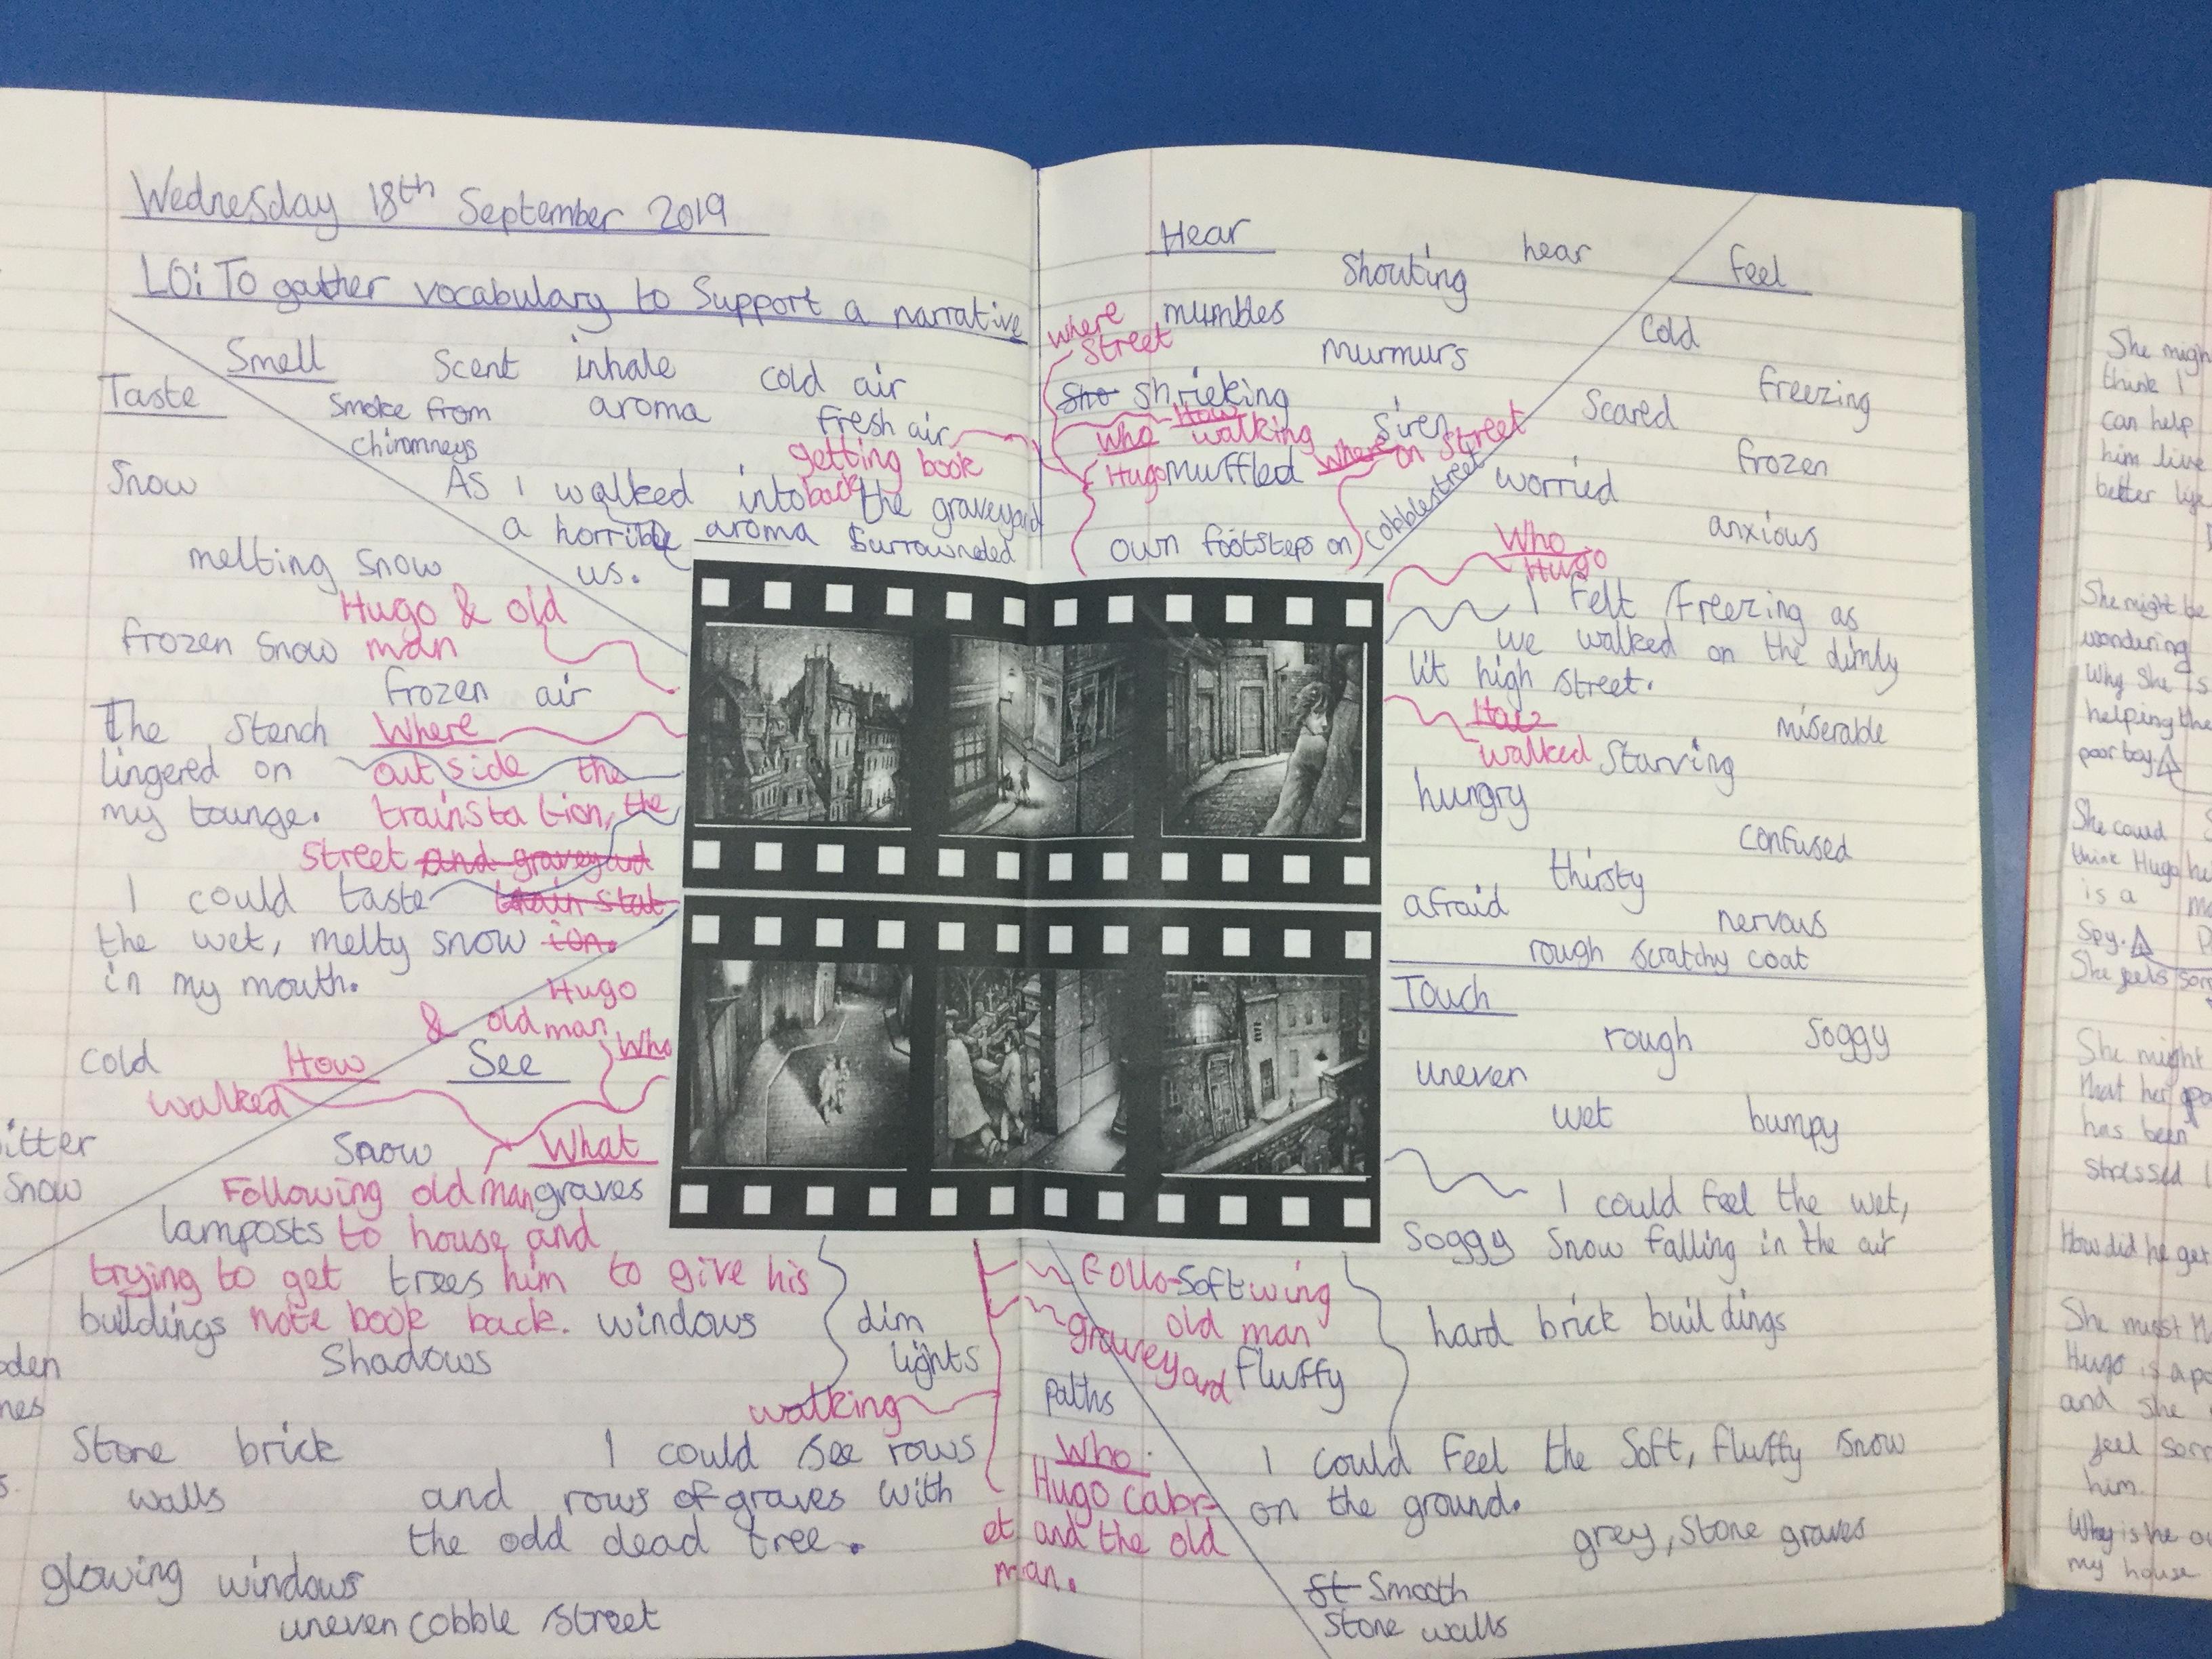 Wednesday 18th September 2019
LO: To gather vocabulary to Support a narrative
Smell
Scent inhale cold air
Smoke from chimneys
aroma
fresh air
getting book back
As I walked into the graveyard
a horrible aroma surrowneded
us.
Taste
Snow
melting snow
Hugo & old
man
frozen snow
frozen air
The stench
lingered on
my tounge.
Where
outside the
trainstation, the
street and graveyard
train stat
ion.
I could taste
the wet, melty snow
in my mouth.
Hugo
& old man
Who
cold
How
walked
See
itter
snow
Snow
What
Following old man
graves
lamposts
to house and
trying to get
trees
him to give his
buildings
note book back.
windows
Shadows
dim
lights
walking
oden
nes
Stone brick
walls
I could see rows
and rows of graves with
the odd dead tree.
glowing windows
uneven cobble street
Hear
shouting
hear
mumbles
where
street
murmurs
Sho shrieking
How
walking
siren
Who
Hugo
muffled
Where on street
own footsteps on
cobble street
feel
cold
freezing
scared
frozen
worried
anxious
Who
Hugo
I felt freezing as
we walked on the dimly
lit high street.
How
walked
miserable
starving
hungry
confused
thirsty
afraid
nervous
rough scratchy coat
Touch
rough
soggy
uneven
wet
bumpy
I could feel the wet,
soggy snow falling in the air
Follo-wing
old man
soft
graveyard
fluffy
hard brick buildings
paths
Who
Hugo Cabr-
et and the old
man.
I could feel the soft, fluffy snow
on the ground.
grey, stone graves
st smooth
stone walls
She migh
think I
can help
him live
better life
She might be
wondering
Why she is
helping the
poor boy
She could
think Hugo
is a
Spy.
She feels sorr
She might
that her
has been
stressed
How did he get
She must
Hugo is a po
and she
feel sorr
him.
Why is he
my house